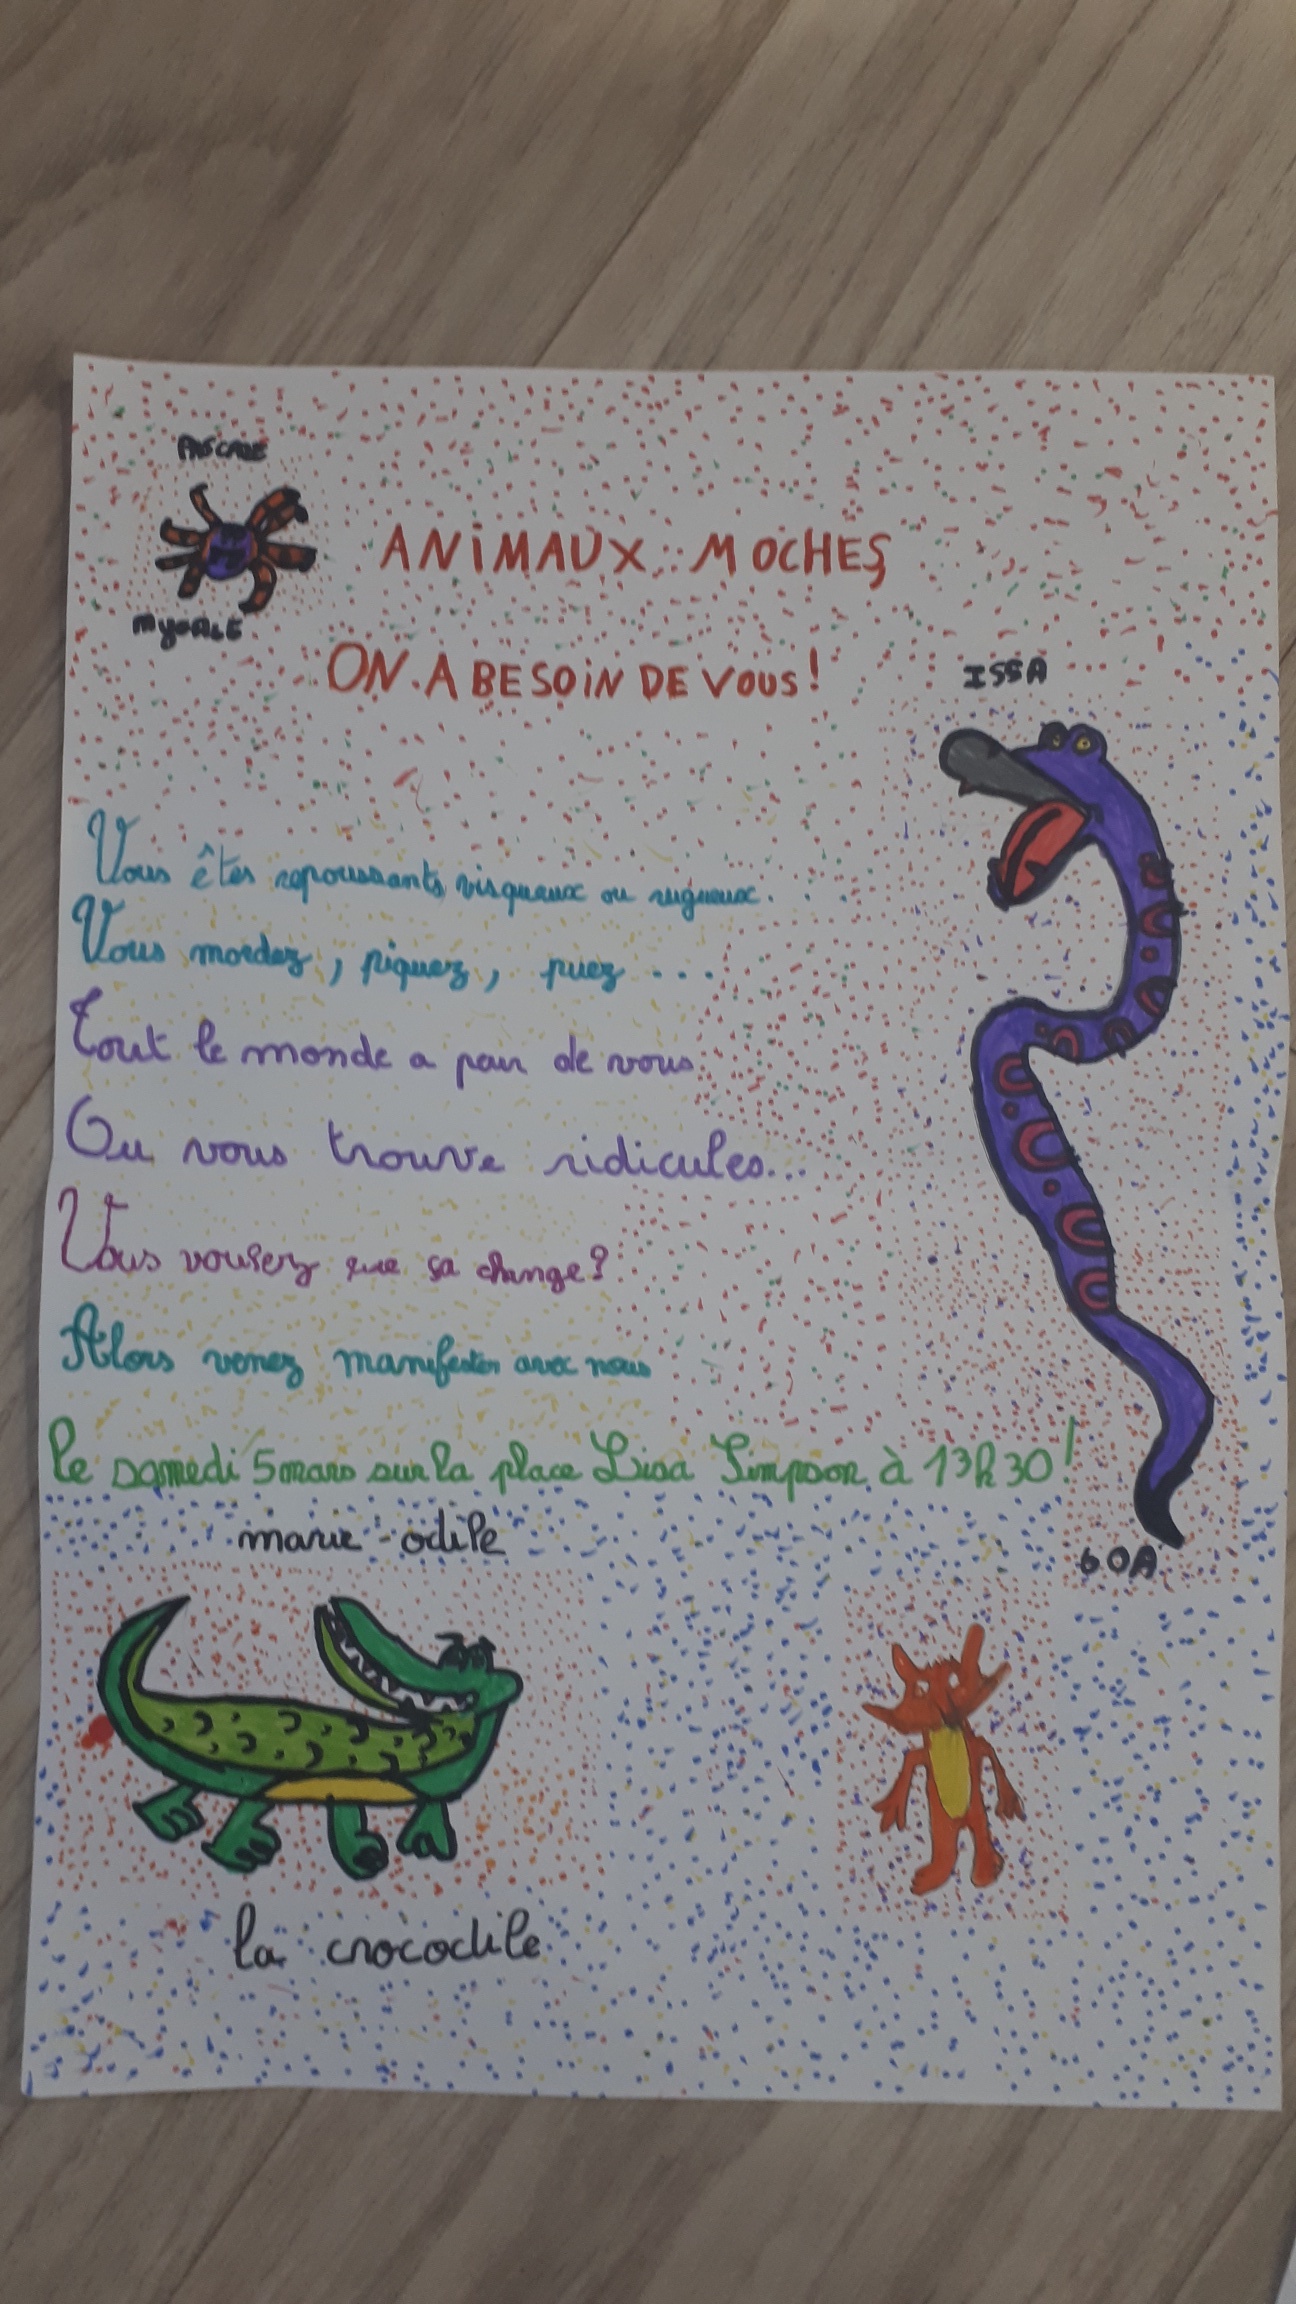 PASCALE
MYGALE
ANiMAUX MOCHES
ON A BESOiN DE VOUS!
ISSA
Vous êtes repoussants, visqueux ou rugueux.
Vous mordez, piquez, puez ...
Tout le monde a peur de vous
Ou vous trouve ridicules...
Vous voulez que ça change?
Alors venez manifester avec nous
le samedi 5 mars sur la place Lisa Simpson à 13h30!
BOA
marie-odile
la crocodile